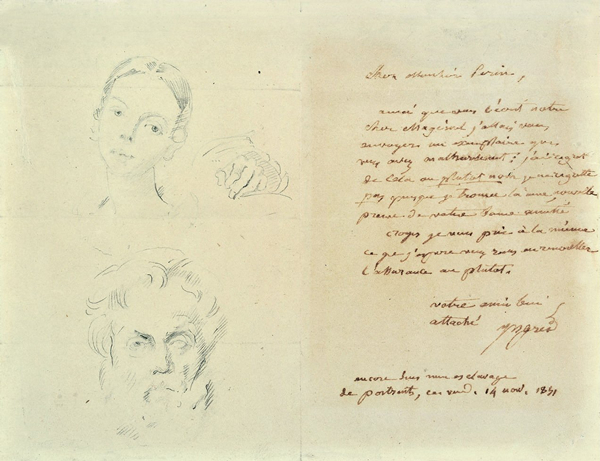 Cher Monsieur Perin,
que vous l'écrit notre
cher Magimel j'allais vous
envoyer un exemplaire que
vous avez malheureusement : j'ai
de cela ou plutot non je ne regrette
pas puisque je trouve là une nouvelle
preuve de votre bonne amitié
croyez je vous prie à la mienne
ce que j'espère
l'assurance au plutot.
votre ami bien
attaché Ingres
encore dans mon esclavage
de portraits, ce 14 nov. 1851